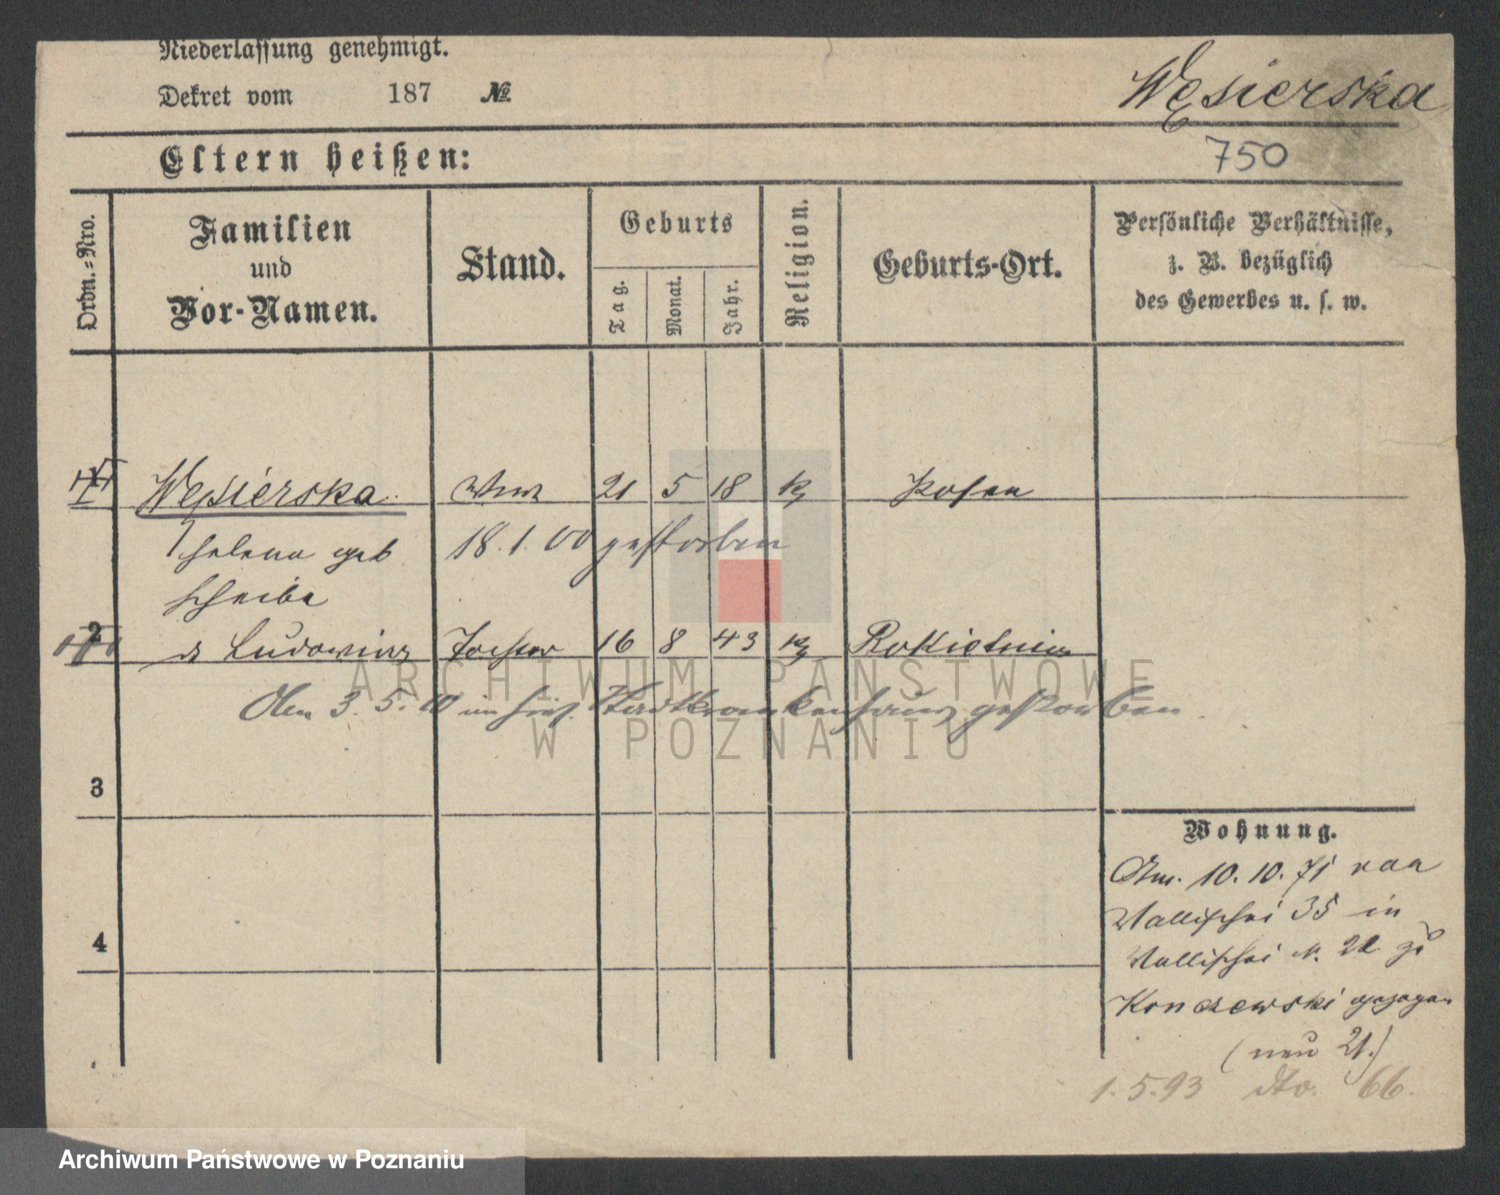 Niederlassung genehmigt.
Dekret vom 187 №
Węsierska
750
Eltern heißen:
Ordn.-Nro.
Familien
und
Vor-Namen.
Stand.
Geburts
Tag.
Monat.
Jahr.
Religion.
Geburts-Ort.
Persönliche Verhältnisse,
z. B. bezüglich
des Gewerbes u. s. w.
1 Węsierska 21 5 18 k Posen
Helena geb 18.1.00 gestorben
Scheibe
2 Ludowina Tochter 16 8 43 k Rokietnica
Am 3.5.10 im hies. Stadtkrankenhaus gestorben.
3
4
Wohnung.
Am. 10.10.71 von
Wallischei 35 in
Wallischei N. 22 zu
Konczewski gezogen
(neu 21.)
1.5.93 dto. 66.
ARCHIWUM PAŃSTWOWE
W POZNANIU
Archiwum Państwowe w Poznaniu